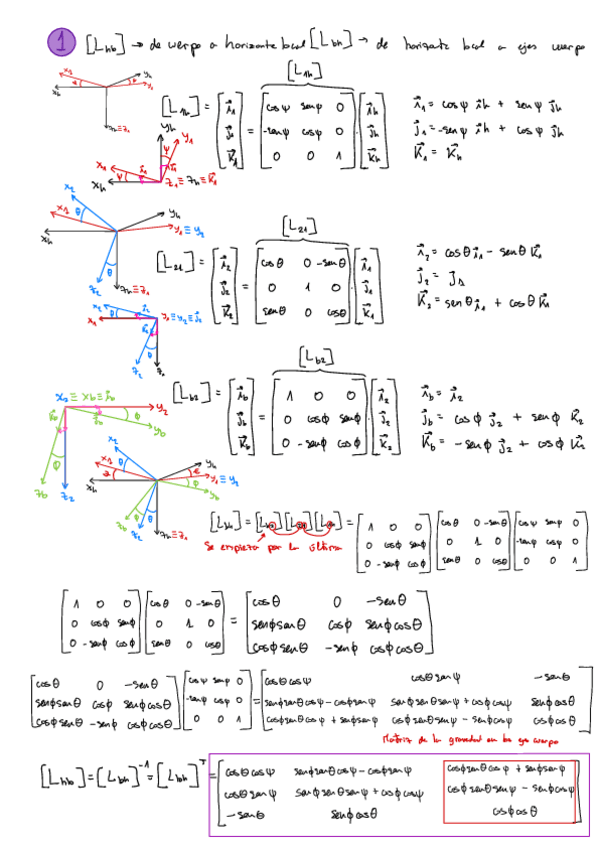 1 [L_hb] → de cuerpo a horizonte local [L_bh] → de horizonte local a ejes cuerpo
x_1 y_h y_1 x_h z_h≡z_1
[L_1h]
[L_1h] = [i⃗_1; j⃗_1; k⃗_1] = [cosψ senψ 0; -senψ cosψ 0; 0 0 1] · [i⃗_h; j⃗_h; k⃗_h]
i⃗_1 = cosψ i⃗_h + senψ j⃗_h
j⃗_1 = -senψ i⃗_h + cosψ j⃗_h
k⃗_1 = k⃗_h
y_h y_1 ψ x_1 ψ i⃗_1 x_h z_1≡z_h≡k⃗_1
x_2 θ x_1 x_h y_h y_1≡y_2 θ z_2 z_h≡z_1
[L_21]
[L_21] = [i⃗_2; j⃗_2; k⃗_2] = [cosθ 0 -senθ; 0 1 0; senθ 0 cosθ] · [i⃗_1; j⃗_1; k⃗_1]
i⃗_2 = cosθ i⃗_1 - senθ k⃗_1
j⃗_2 = j⃗_1
k⃗_2 = senθ i⃗_1 + cosθ k⃗_1
x_2 θ i⃗_2 x_1 y_1≡y_2≡j⃗_2 k⃗_2 θ z_2 z_1
[L_b2]
[L_b2] = [i⃗_b; j⃗_b; k⃗_b] = [1 0 0; 0 cosϕ senϕ; 0 -senϕ cosϕ] · [i⃗_2; j⃗_2; k⃗_2]
i⃗_b = i⃗_2
j⃗_b = cosϕ j⃗_2 + senϕ k⃗_2
k⃗_b = -senϕ j⃗_2 + cosϕ k⃗_2
x_2≡x_b≡i⃗_b y_2 ϕ j⃗_b y_b k⃗_b ϕ z_b z_2
x_2 θ x_1 x_h y_h y_1≡y_2 ϕ y_b z_b ϕ θ z_2 z_h≡z_1
[L_bh] = [L_b2][L_21][L_1h] = [1 0 0; 0 cosϕ senϕ; 0 -senϕ cosϕ] [cosθ 0 -senθ; 0 1 0; senθ 0 cosθ] [cosψ senψ 0; -senψ cosψ 0; 0 0 1]
Se empieza por la última
[1 0 0; 0 cosϕ senϕ; 0 -senϕ cosϕ] [cosθ 0 -senθ; 0 1 0; senθ 0 cosθ] = [cosθ 0 -senθ; senϕsenθ cosϕ senϕcosθ; cosϕsenθ -senϕ cosϕcosθ]
[cosθ 0 -senθ; senϕsenθ cosϕ senϕcosθ; cosϕsenθ -senϕ cosϕcosθ] [cosψ senψ 0; -senψ cosψ 0; 0 0 1] = [cosθcosψ cosθsenψ -senθ; senϕsenθcosψ-cosϕsenψ senϕsenθsenψ+cosϕcosψ senϕcosθ; cosϕsenθcosψ+senϕsenψ cosϕsenθsenψ-senϕcosψ cosϕcosθ]
Matriz de la gravedad en los ejes cuerpo
[L_hb] = [L_bh]^-1 = [L_bh]^T = [cosθcosψ senϕsenθcosψ-cosϕsenψ cosϕsenθcosψ+senϕsenψ; cosθsenψ senϕsenθsenψ+cosϕcosψ cosϕsenθsenψ-senϕcosψ; -senθ senϕcosθ cosϕcosθ]